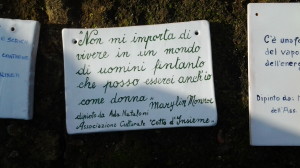 "Non mi importa di
vivere in un mondo
di uomini fintanto
che posso esserci anch'io
come donna"
Marylin Monroe
dipinto da Ada Nataloni
Associazione Culturale "Cetta d'Insieme"
C'è una fo
del vapo
dell'ener
Dipinto da:
dell'Ass.